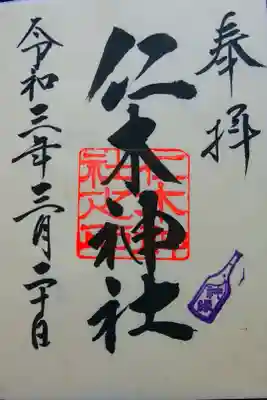 奉拝
仁木神社
令和三年三月二十日